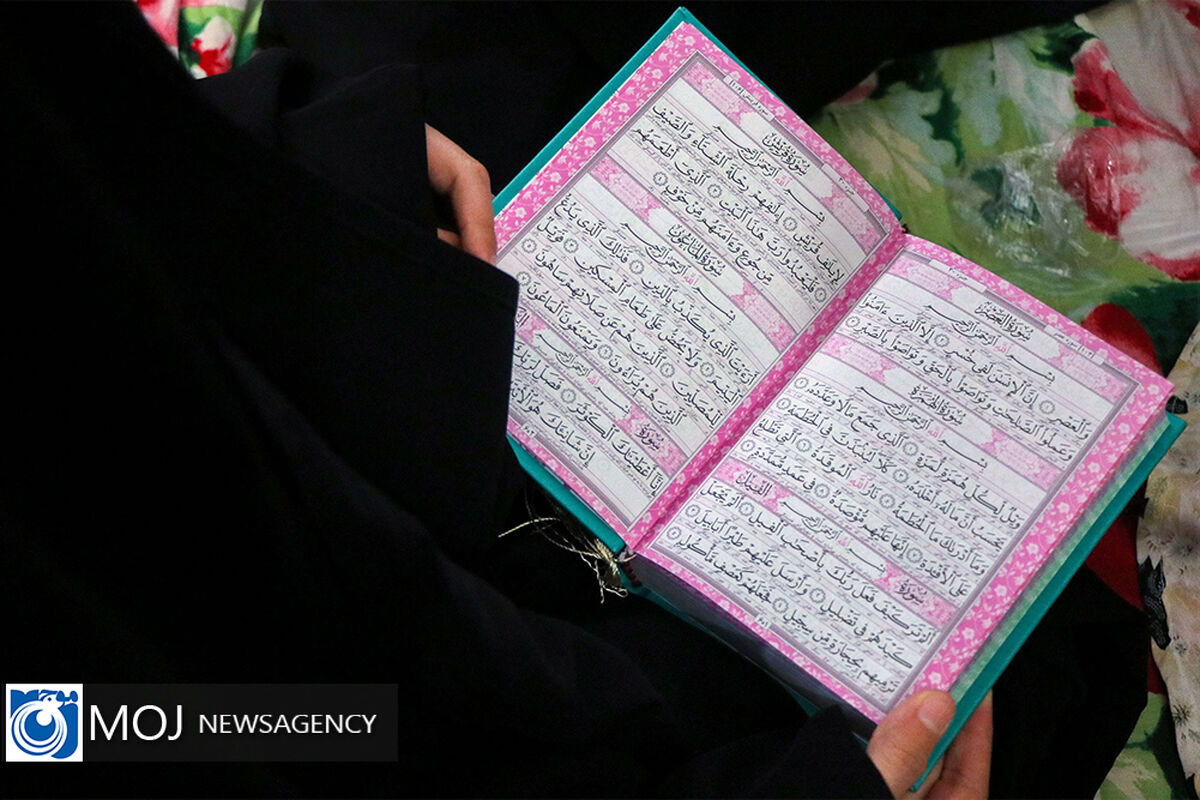 سُورَةُ العَصْرِ
بِسْمِ اللَّهِ الرَّحْمَٰنِ الرَّحِيمِ
وَالْعَصْرِ ١ إِنَّ الْإِنسَٰنَ لَفِى خُسْرٍ ٢ إِلَّا الَّذِينَ ءَامَنُوا
وَعَمِلُوا الصَّٰلِحَٰتِ وَتَوَاصَوْا بِالْحَقِّ وَتَوَاصَوْا بِالصَّبْرِ ٣
سُورَةُ الهُمَزَة
بِسْمِ اللَّهِ الرَّحْمَٰنِ الرَّحِيمِ
وَيْلٌ لِكُلِّ هُمَزَةٍ لُمَزَةٍ ١ الَّذِى جَمَعَ مَالًا وَعَدَّدَهُ ٢
يَحْسَبُ أَنَّ مَالَهُ أَخْلَدَهُ ٣ كَلَّا لَيُنبَذَنَّ فِى الْحُطَمَةِ ٤
وَمَا أَدْرَىٰكَ مَا الْحُطَمَةُ ٥ نَارُ اللَّهِ الْمُوقَدَةُ ٦ الَّتِى تَطَّلِعُ
عَلَى الْأَفْـِٔدَةِ ٧ إِنَّهَا عَلَيْهِم مُؤْصَدَةٌ ٨ فِى عَمَدٍ مُمَدَّدَةٍ ٩
سُورَةُ الفِيلِ
بِسْمِ اللَّهِ الرَّحْمَٰنِ الرَّحِيمِ
أَلَمْ تَرَ كَيْفَ فَعَلَ رَبُّكَ بِأَصْحَٰبِ الْفِيلِ ١ أَلَمْ يَجْعَلْ
كَيْدَهُمْ فِى تَضْلِيلٍ ٢ وَأَرْسَلَ عَلَيْهِمْ طَيْرًا أَبَابِيلَ ٣
تَرْمِيهِم بِحِجَارَةٍ مِن سِجِّيلٍ ٤ فَجَعَلَهُمْ كَعَصْفٍ مَأْكُولٍ ٥
سُورَةُ قُرَيْشٍ
بِسْمِ اللَّهِ الرَّحْمَٰنِ الرَّحِيمِ
لِإِيلَٰفِ قُرَيْشٍ ١ إِۦلَٰفِهِمْ رِحْلَةَ الشِّتَاءِ وَالصَّيْفِ
٢ فَلْيَعْبُدُوا رَبَّ هَٰذَا الْبَيْتِ ٣ الَّذِى أَطْعَمَهُم
مِن جُوعٍ وَءَامَنَهُم مِنْ خَوْفٍ ٤
سُورَةُ المَاعُونِ
بِسْمِ اللَّهِ الرَّحْمَٰنِ الرَّحِيمِ
أَرَءَيْتَ الَّذِى يُكَذِّبُ بِالدِّينِ ١ فَذَٰلِكَ الَّذِى يَدُعُّ
الْيَتِيمَ ٢ وَلَا يَحُضُّ عَلَىٰ طَعَامِ الْمِسْكِينِ ٣ فَوَيْلٌ
لِلْمُصَلِّينَ ٤ الَّذِينَ هُمْ عَن صَلَاتِهِمْ سَاهُونَ ٥
الَّذِينَ هُمْ يُرَاءُونَ ٦ وَيَمْنَعُونَ الْمَاعُونَ ٧
سُورَةُ
بِسْمِ اللَّهِ الرَّحْمَٰنِ الرَّحِيمِ
إِنَّا أَعْطَيْنَٰكَ الْكَوْثَرَ ١ فَصَلِّ لِرَبِّكَ
إِنَّ شَانِئَكَ هُوَ
MOJ NEWSAGENCY